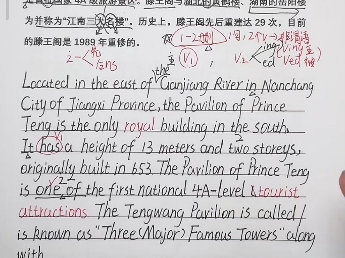 是首批国家4A级旅游景区。滕王阁与湖北的黄鹤楼、湖南的岳阳楼
为并称为“江南三大名楼”。历史上，滕王阁先后重建达 29 次，目前
的滕王阁是 1989 年重修的。
1-2例 1句，2个v
2 ing
ens 主 V₁ , V₂ ed
the
Located in the east of Ganjiang River in Nanchang
City of Jiangxi Province, the Pavilion of Prince
Teng is the only royal building in the south.
It has a height of 13 meters and two storeys,
originally built in 653. The Pavilion of Prince Teng
is one of the first national 4A-level & tourist
attractions The Tengwang Pavilion is called /
is known as "Three (Major) Famous Towers" along
with